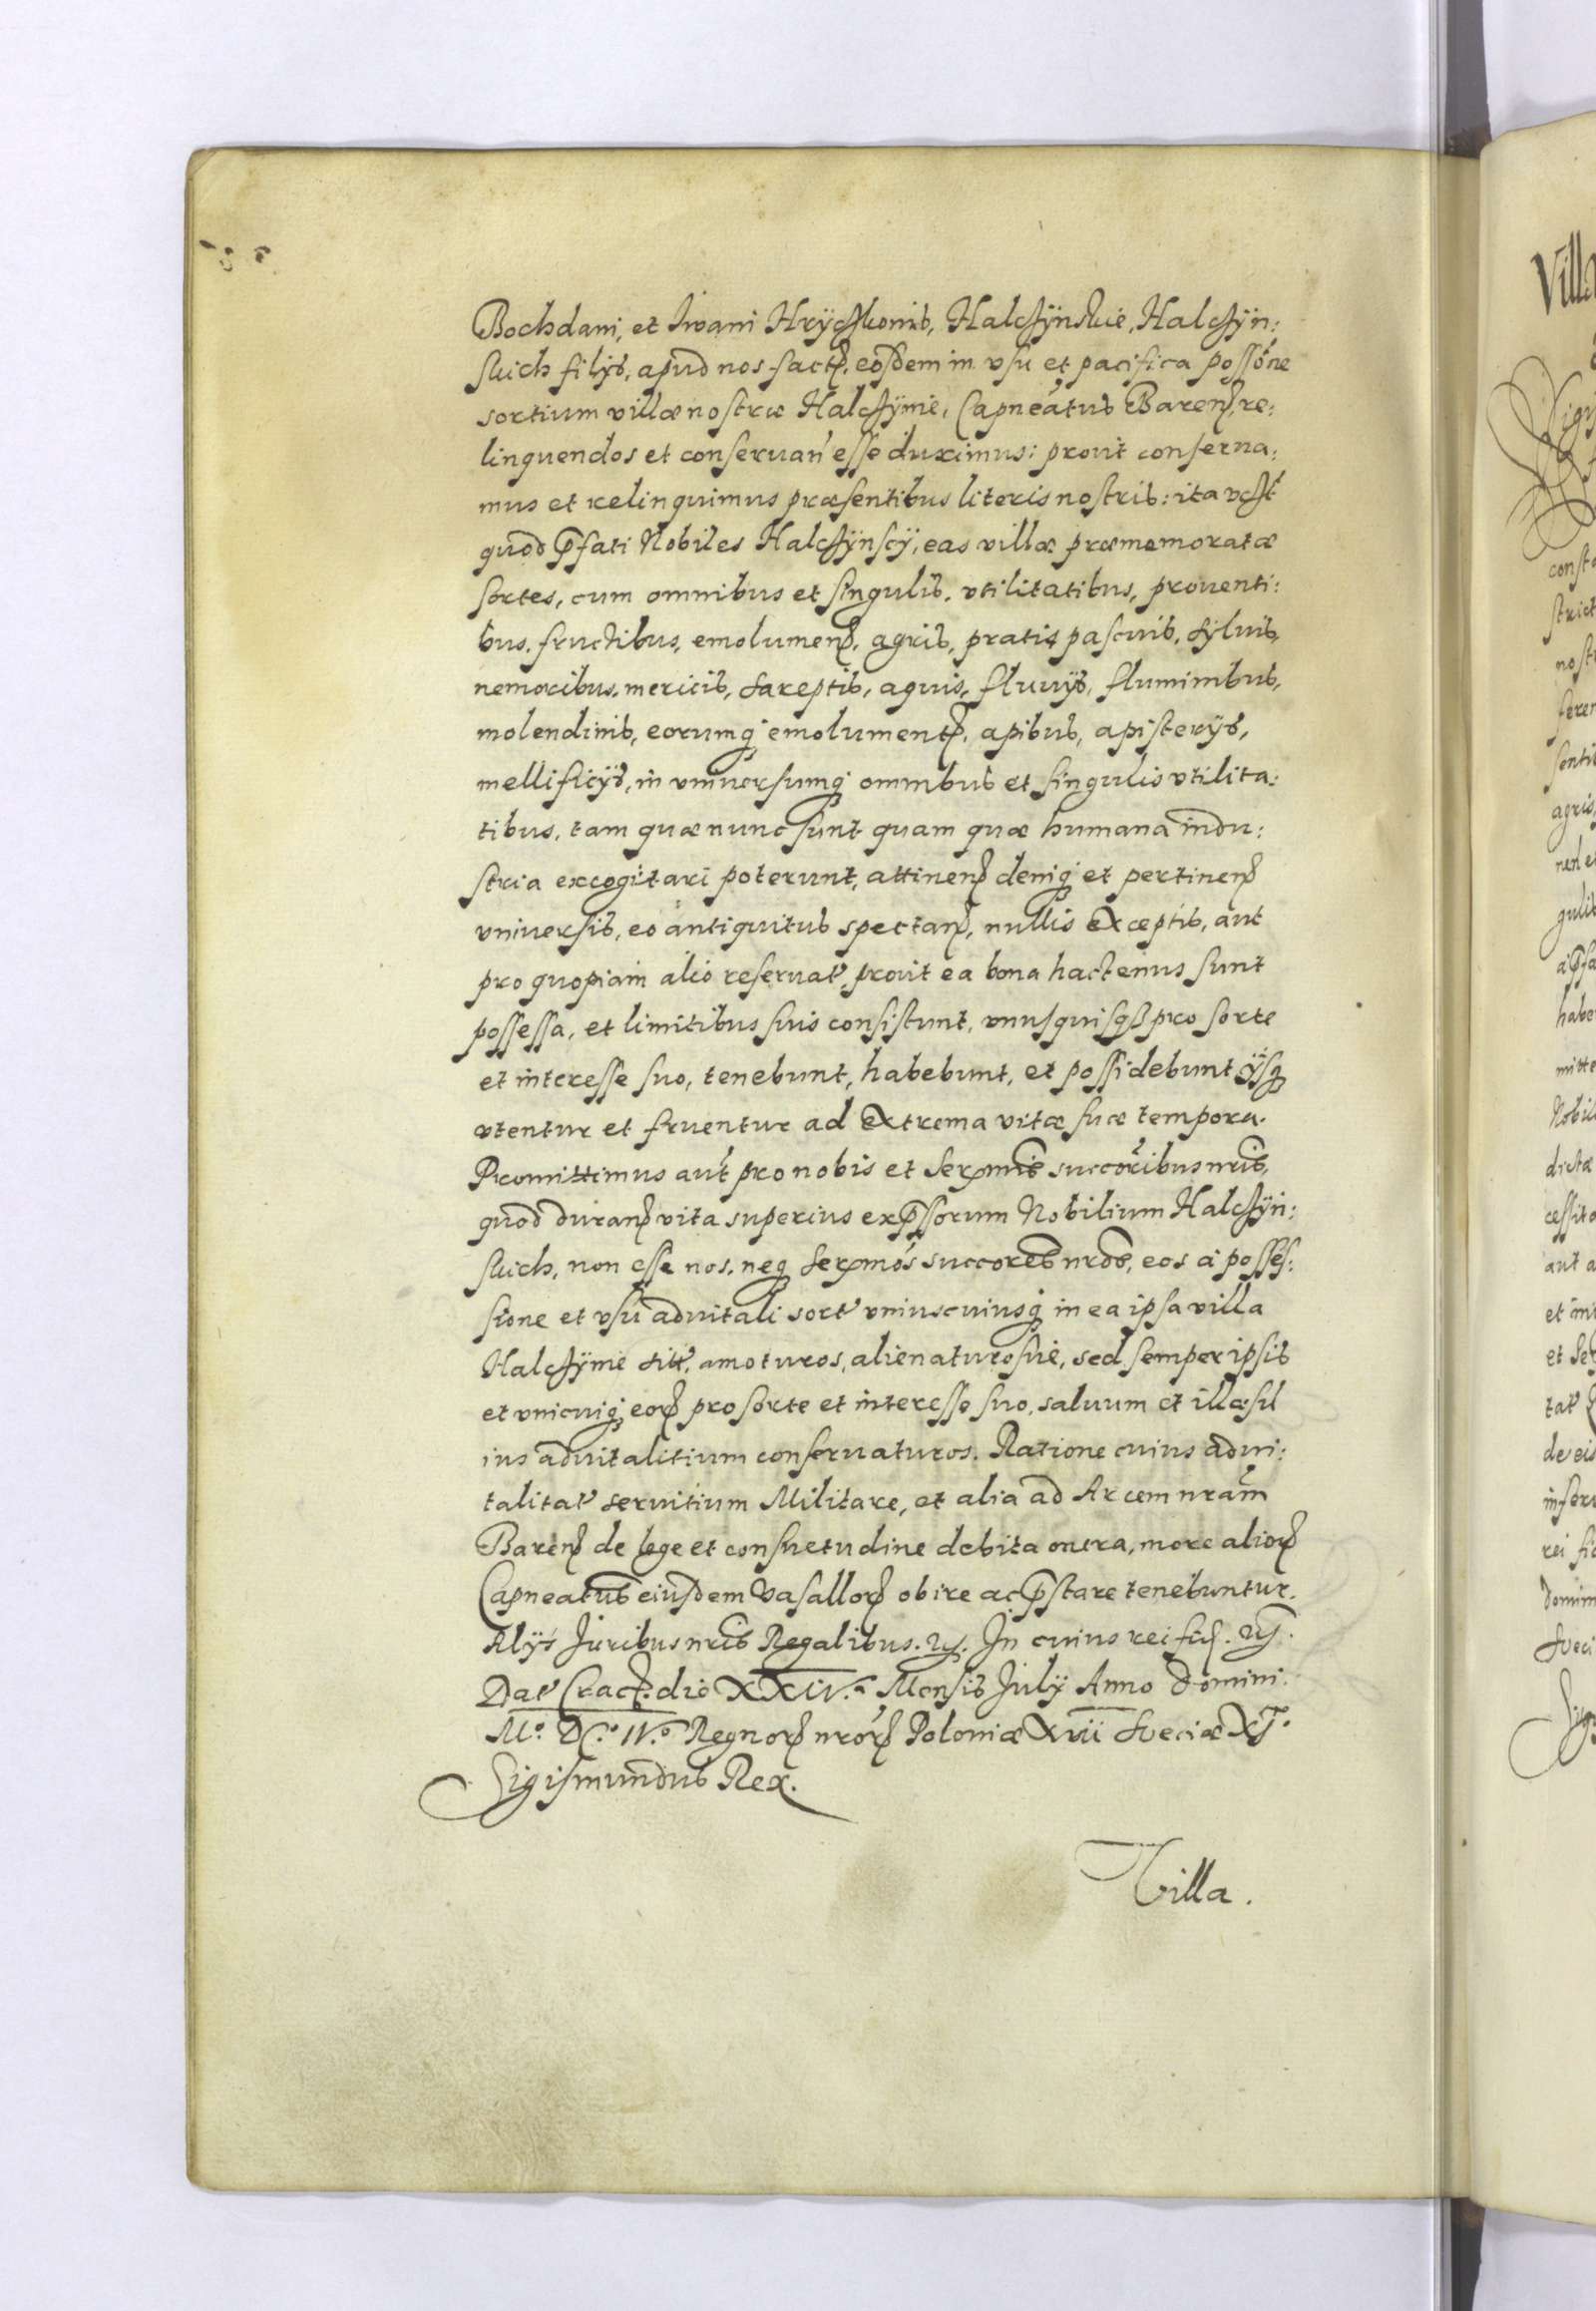 Bochdani, et Iwani Hrÿczkonis, Halczÿnskie, Halczÿn:
skich filÿs, apud nos factꝭ, eosdem in vsu et pacifica possōne
sortium villæ nostræ Halczÿnie, Capneatus Barenꝭ, re:
linquendos et conseruan̄ esse duximus: prout conserua:
mus et relinquimus præsentibus literis nostris: ita vt
quod p̄fati Nobiles Halczÿnscÿ, eas villæ præmemoratæ
sortes, cum omnibus et singulis, vtilitatibus, prouenti:
bus, fructibus, emolumenꝭ, agris, pratis, pascuis, syluis,
nemoribus, mericis, aquis, fluuÿs, fluminibus,
molendinis, eorumq̢ emolumentꝭ, apibus, apisterÿs,
mellificÿs, in vniuersumq̢ omnibus et singulis vtilita:
tibus, tam quæ nunc sunt quam quæ humana indu:
stria excogitari poterunt, attinenꝭ deniq̢ et pertinenꝭ
vniuersis, eo antiquitus spectanꝭ, nullis exceptis, aut
pro quopiam alio reseruat̄, prout ea bona hactenus sunt
possessa, et limitibus suis consistunt, vnusquisq̢ pro sorte
et interesse suo, tenebunt, habebunt, et possidebunt ÿsq̢
vtentur et fruentur ad extrema vitæ suæ tempora.
Promittimus aūt pro nobis et Serxmis succoribus nrīs,
quod duranꝭ vita superius exp̄ssorum Nobilium Halczÿn:
skich, non esse nos, neq̢ Serxmos succores nros, eos à posses:
sione et vsu aduitali sort̄ vniuscuiusq̢ in ea ipsa villa
Halczÿnie sitt̄, amoturos, alienaturosue, sed semper ipsis
et vnicuiq̢ eorꝭ pro sorte et interesse suo, saluum et illæsū
ius aduitalitium conseruaturos. Ratione cuius adui:
talitat̄ seruitium Militare, et alia ad Arcem nrām
Barenꝭ de lege et consuetudine debita onera, more aliorꝭ
Capneatus eiusdem Vasallorꝭ obire ac p̄stare tenebuntur.
Alÿs Iuribus nrīs Regalibus. In cuius rei fid.
Dat̄ Crac. die XXIV.ª Mensis Julÿ Anno Domini.
M.º DC.º IV.º Regnorꝭ nrōrꝭ Poloniæ XVII Sueciæ XI.
Sigismundus Rex.
Villa.